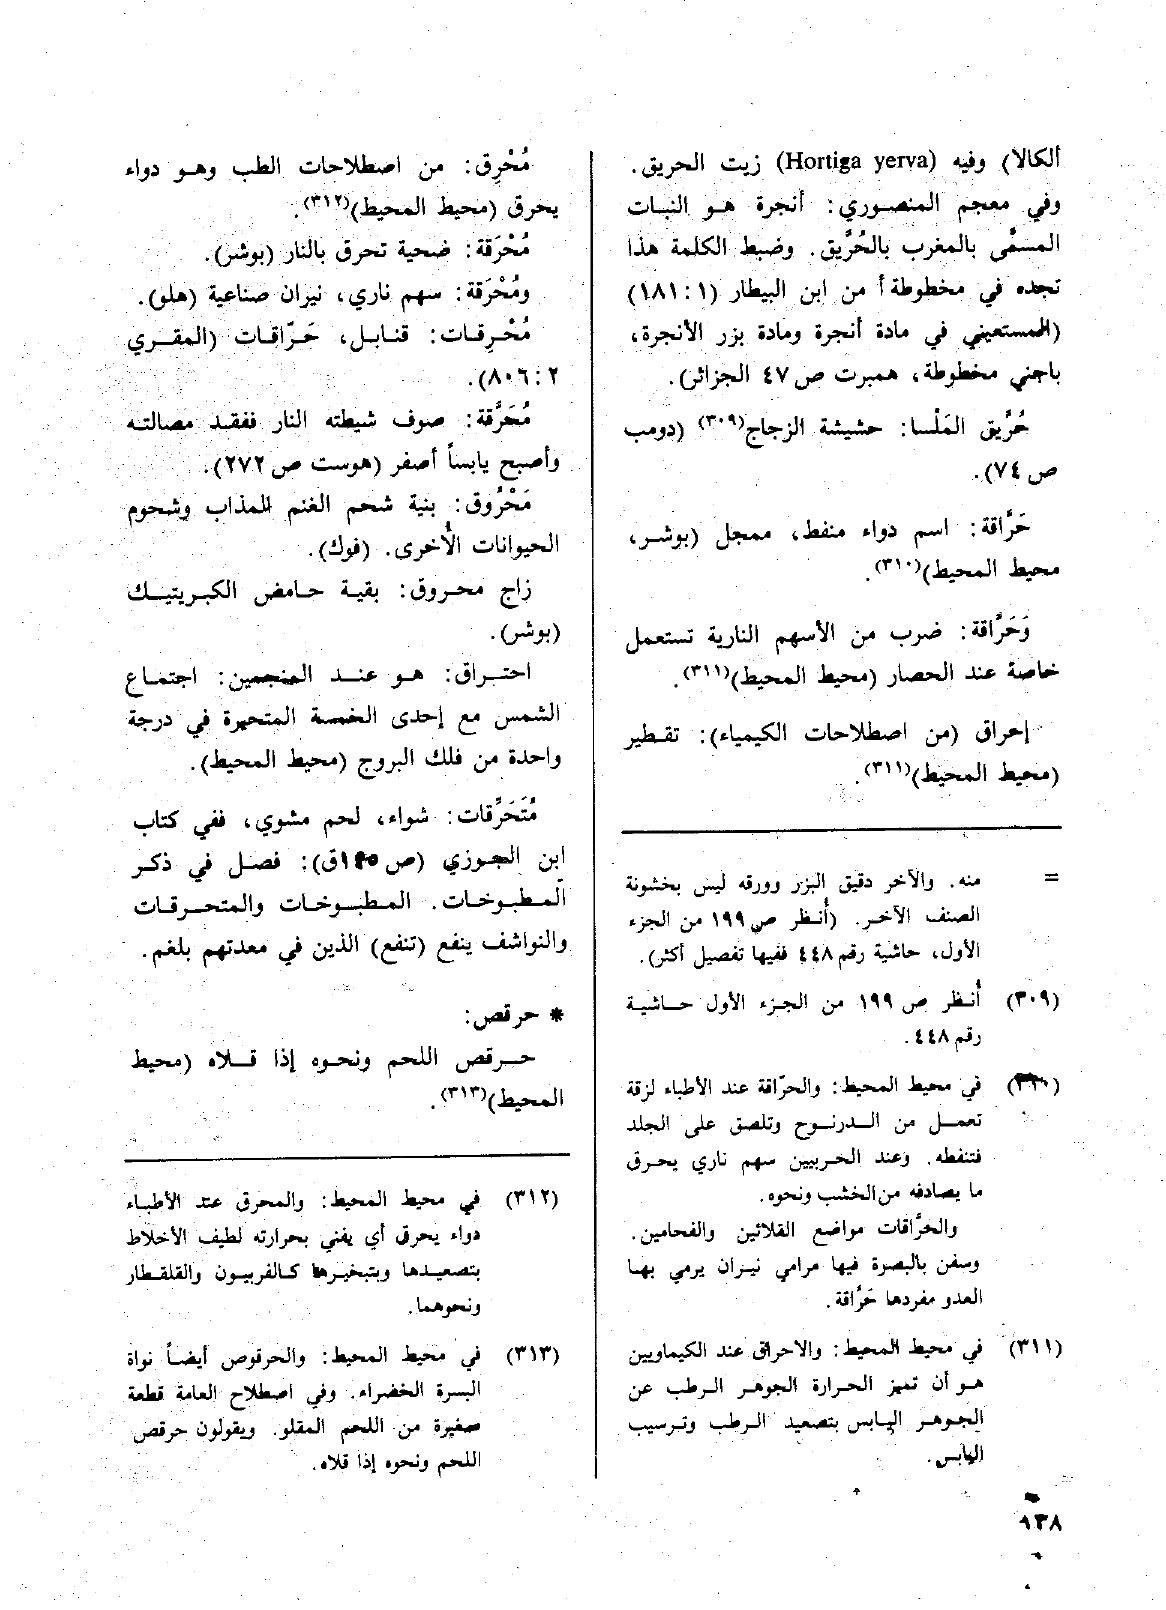 ألكالا) وفيه (Hortiga yerva) زيت الحريق.
وفي معجم المنصوري: أنجرة هو النبات
المسمَّى بالمغرب بالحُرَّيق. وضبط الكلمة هذا
تجده في مخطوطة أ من ابن البيطار (١: ١٨١)
(المستعيني في مادة أنجرة ومادة بزر الأنجرة،
باجني مخطوطة، همبرت ص ٤٧ الجزائر).
حُرَّيق المَلْسا: حشيشة الزجاج(٣٠٩) (دومب
ص ٧٤).
حَرَّاقة: اسم دواء منفط، ممجل (بوشر،
محيط المحيط)(٣١٠).
وَحَرَّاقة: ضرب من الأسهم النارية تستعمل
خاصة عند الحصار (محيط المحيط)(٣١١).
إحراق (من اصطلاحات الكيمياء): تقطير
(محيط المحيط)(٣١١).
= منه. والآخر دقيق البزر وورقه ليس بخشونة
الصنف الآخر. (أُنظر ص ١٩٩ من الجزء
الأول، حاشية رقم ٤٤٨ ففيها تفصيل أكثر).
(٣٠٩) أُنظر ص ١٩٩ من الجزء الأول حاشية
رقم ٤٤٨.
في محيط المحيط: والحرّاقة عند الأطباء لزقة
تعمل من الدرنوح وتلصق على الجلد
فتنفطه. وعند الحربيين سهم ناري يحرق
ما يصادفه من الخشب ونحوه.
والحرَّاقات مواضع القلائين والفحامين.
وسفن بالبصرة فيها مرامي نيران يرمي بها
العدو مفردها حَرَّاقة.
(٣١١) في محيط المحيط: والاحراق عند الكيماويين
هو أن تميز الحرارة الجوهر الرطب عن
الجوهر اليابس بتصعيد الرطب وترسيب
اليابس.
٩٣٨
مُحْرِق: من اصطلاحات الطب وهو دواء
يحرق (محيط المحيط)(٣١٢).
مُحْرَقة: ضحية تحرق بالنار (بوشر).
ومُحْرَقة: سهم ناري، نيران صناعية (هلو).
مُحْرِقات: قنابل، حَرّاقات (المقري
٢: ٨٠٦).
مُحَرَّقة: صوف شيطته النار ففقد مصالته
وأصبح يابساً أصفر (هوست ص ٢٧٢).
مَحْرُوق: بنية شحم الغنم المذاب وشحوم
الحيوانات الأُخرى. (فوك).
زاج محروق: بقية حامض الكبريتيك
(بوشر).
احتراق: هو عند المنجمين: اجتماع
الشمس مع إحدى الخمسة المتحيرة في درجة
واحدة من فلك البروج (محيط المحيط).
مُتَحَرِّقات: شواء، لحم مشوي، ففي كتاب
ابن الجوزي (ص ١٤٥ق): فصل في ذكر
المطبوخات. المطبوخات والمتحرقات
والنواشف ينفع (تنفع) الذين في معدتهم بلغم.
* حرقص:
حرقص اللحم ونحوه إذا قلاه (محيط
المحيط)(٣١٣).
(٣١٢) في محيط المحيط: والمحرق عند الأطباء
دواء يحرق أي يفني بحرارته لطيف الأخلاط
بتصعيدها وبتبخيرها كالفربيون والقلقطار
ونحوهما.
(٣١٣) في محيط المحيط: والحرقوص أيضاً نواة
البسرة الخضراء. وفي اصطلاح العامة قطعة
صغيرة من اللحم المقلو. ويقولون حرقص
اللحم ونحوه إذا قلاه.